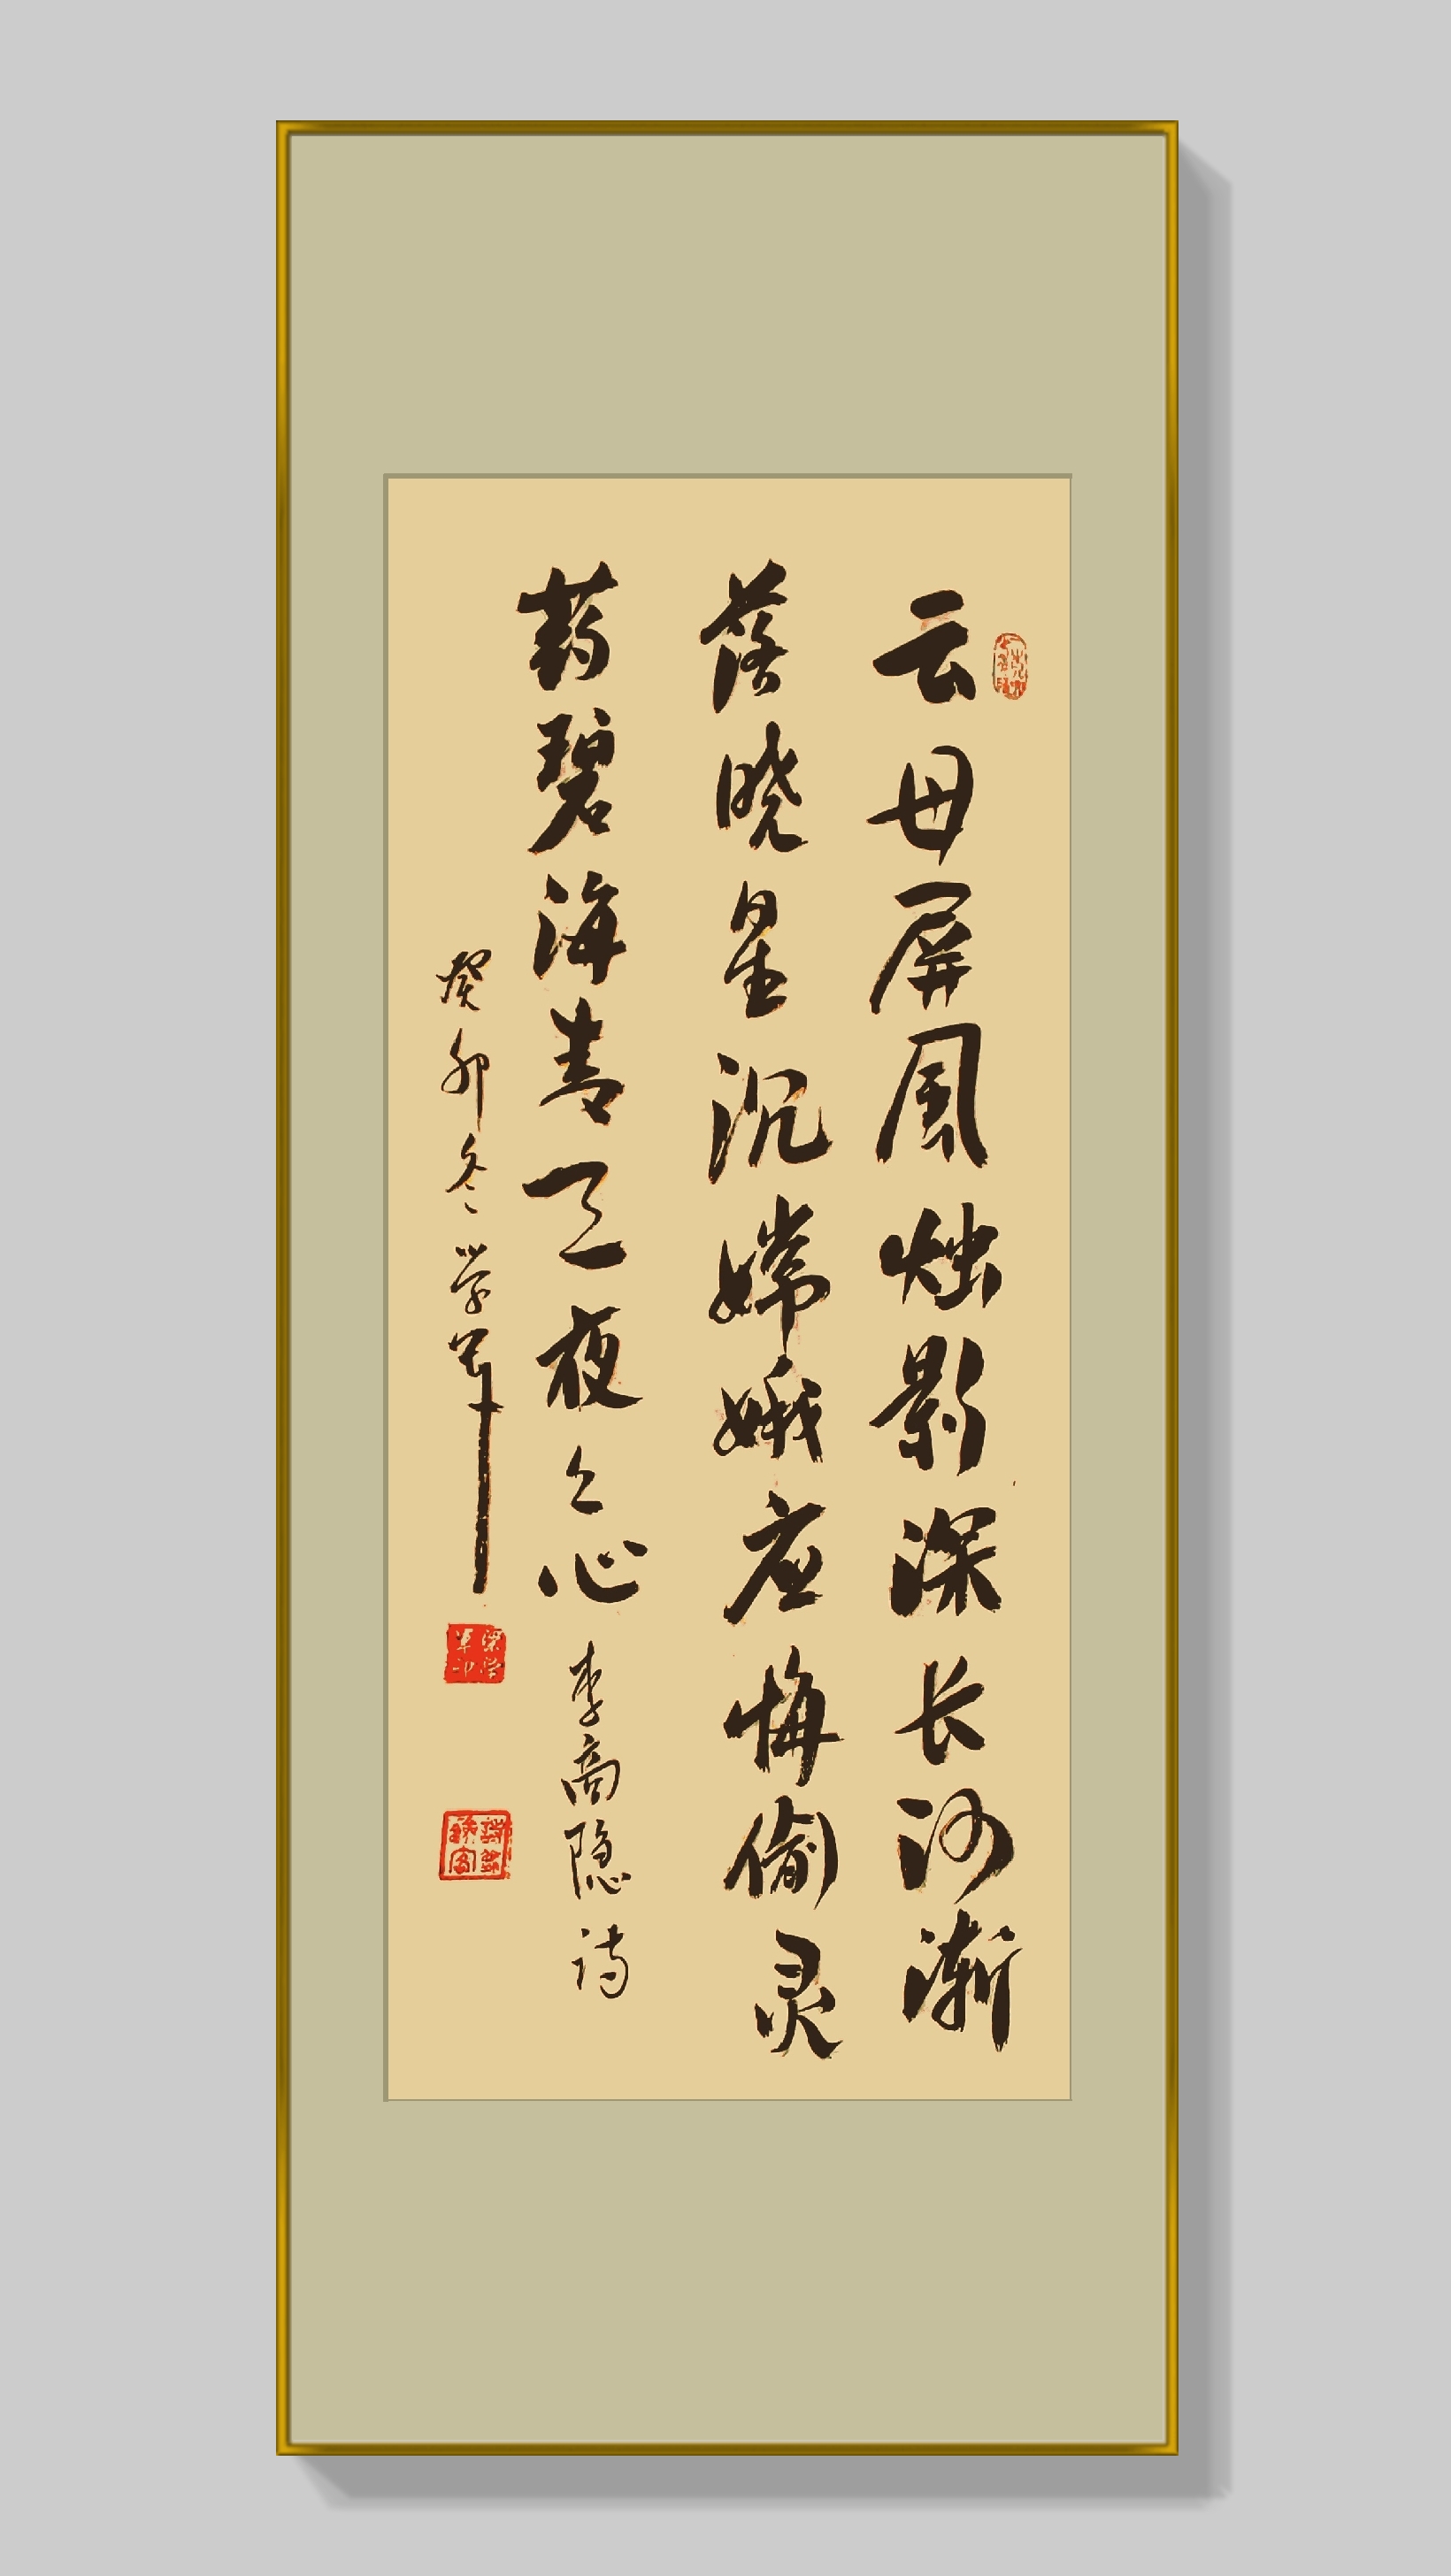 云母屏风烛影深长河渐
落晓星沉嫦娥应悔偷灵
药碧海青天夜夜心李商隐诗
癸卯冬学军